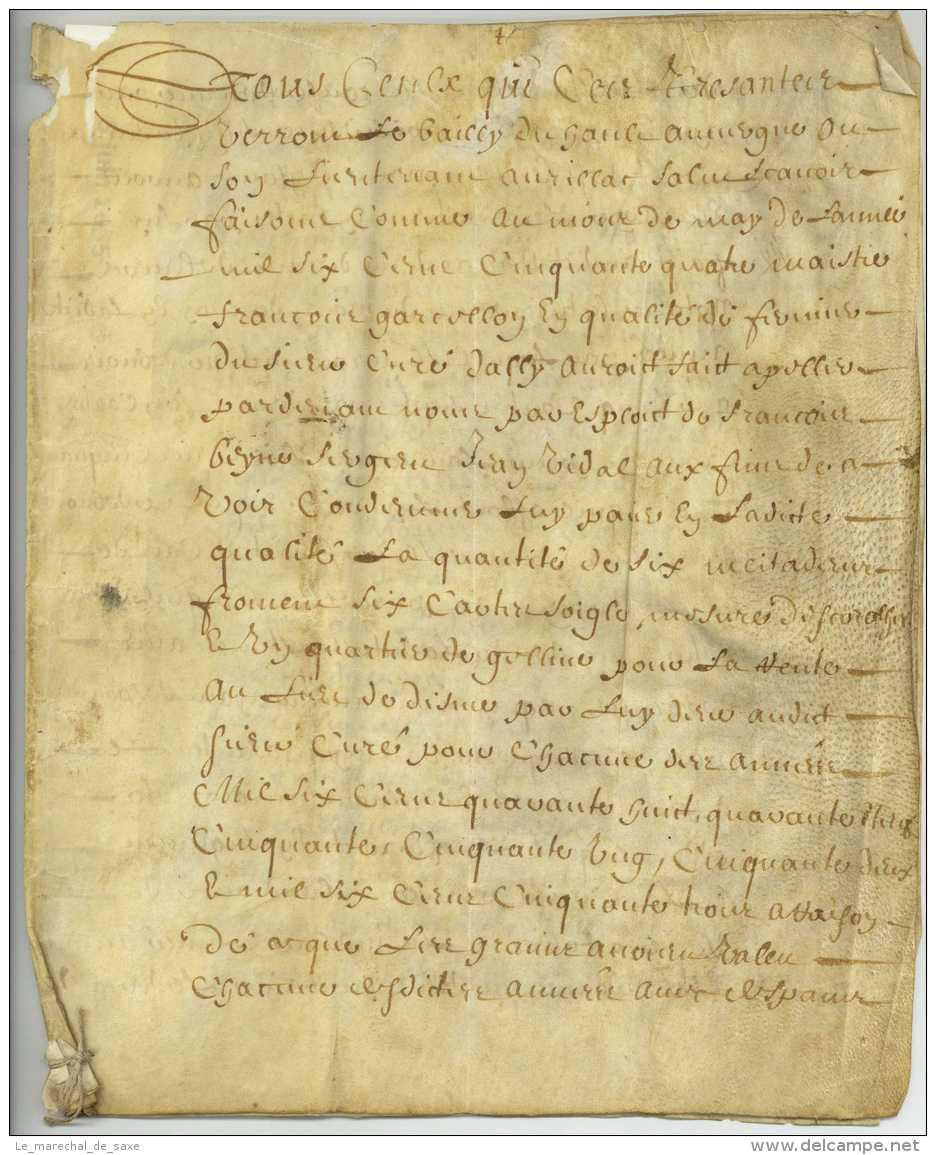 A tous Ceulx qui Ces presantes
verront Le bailly du hault auvergne ou
son Lieutenant aurillac salut scavoir
faisons Comme au mois de may de Lannee
mil six Cens Cinquante quatre maistre
francois garcellon En qualité de fermier
du sieur Curé dally auroict faict apeller
pardevant nous par Exploict de francois
beyne sergent Jean Vidal aux fins de a
voir Condemne Luy paier En Ladicte
qualité La quantité de six
froment six Cartes soigle, mesure
E un quartier de gelline pour La Rente
au Lieu de disme par Luy deue audict
sieur Curé pour Chacune des années
Mil six Cens quarante huict, quarante neuf
Cinquante, Cinquante ung, Cinquante deux
E mil six Cens Cinquante trois a Raison
de ce que Les grains avoient Valeu
Chacune desdictes années avec despans
Le_marechal_de_saxe
delcampe.net